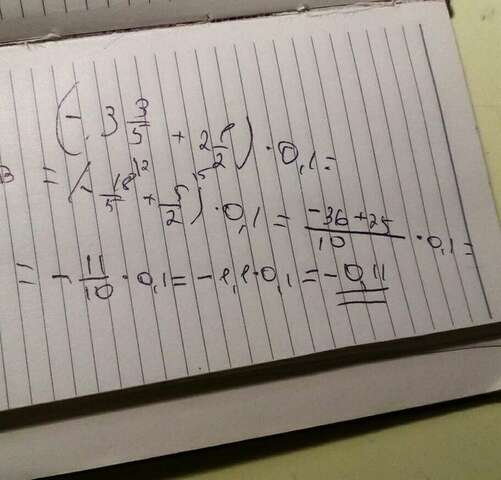 (-3 3/5 + 2 1/2) · 0,1 =
= (-18/5 + 5/2) · 0,1 = -36+25/10 · 0,1 =
= -11/10 · 0,1 = -1,1·0,1 = -0,11